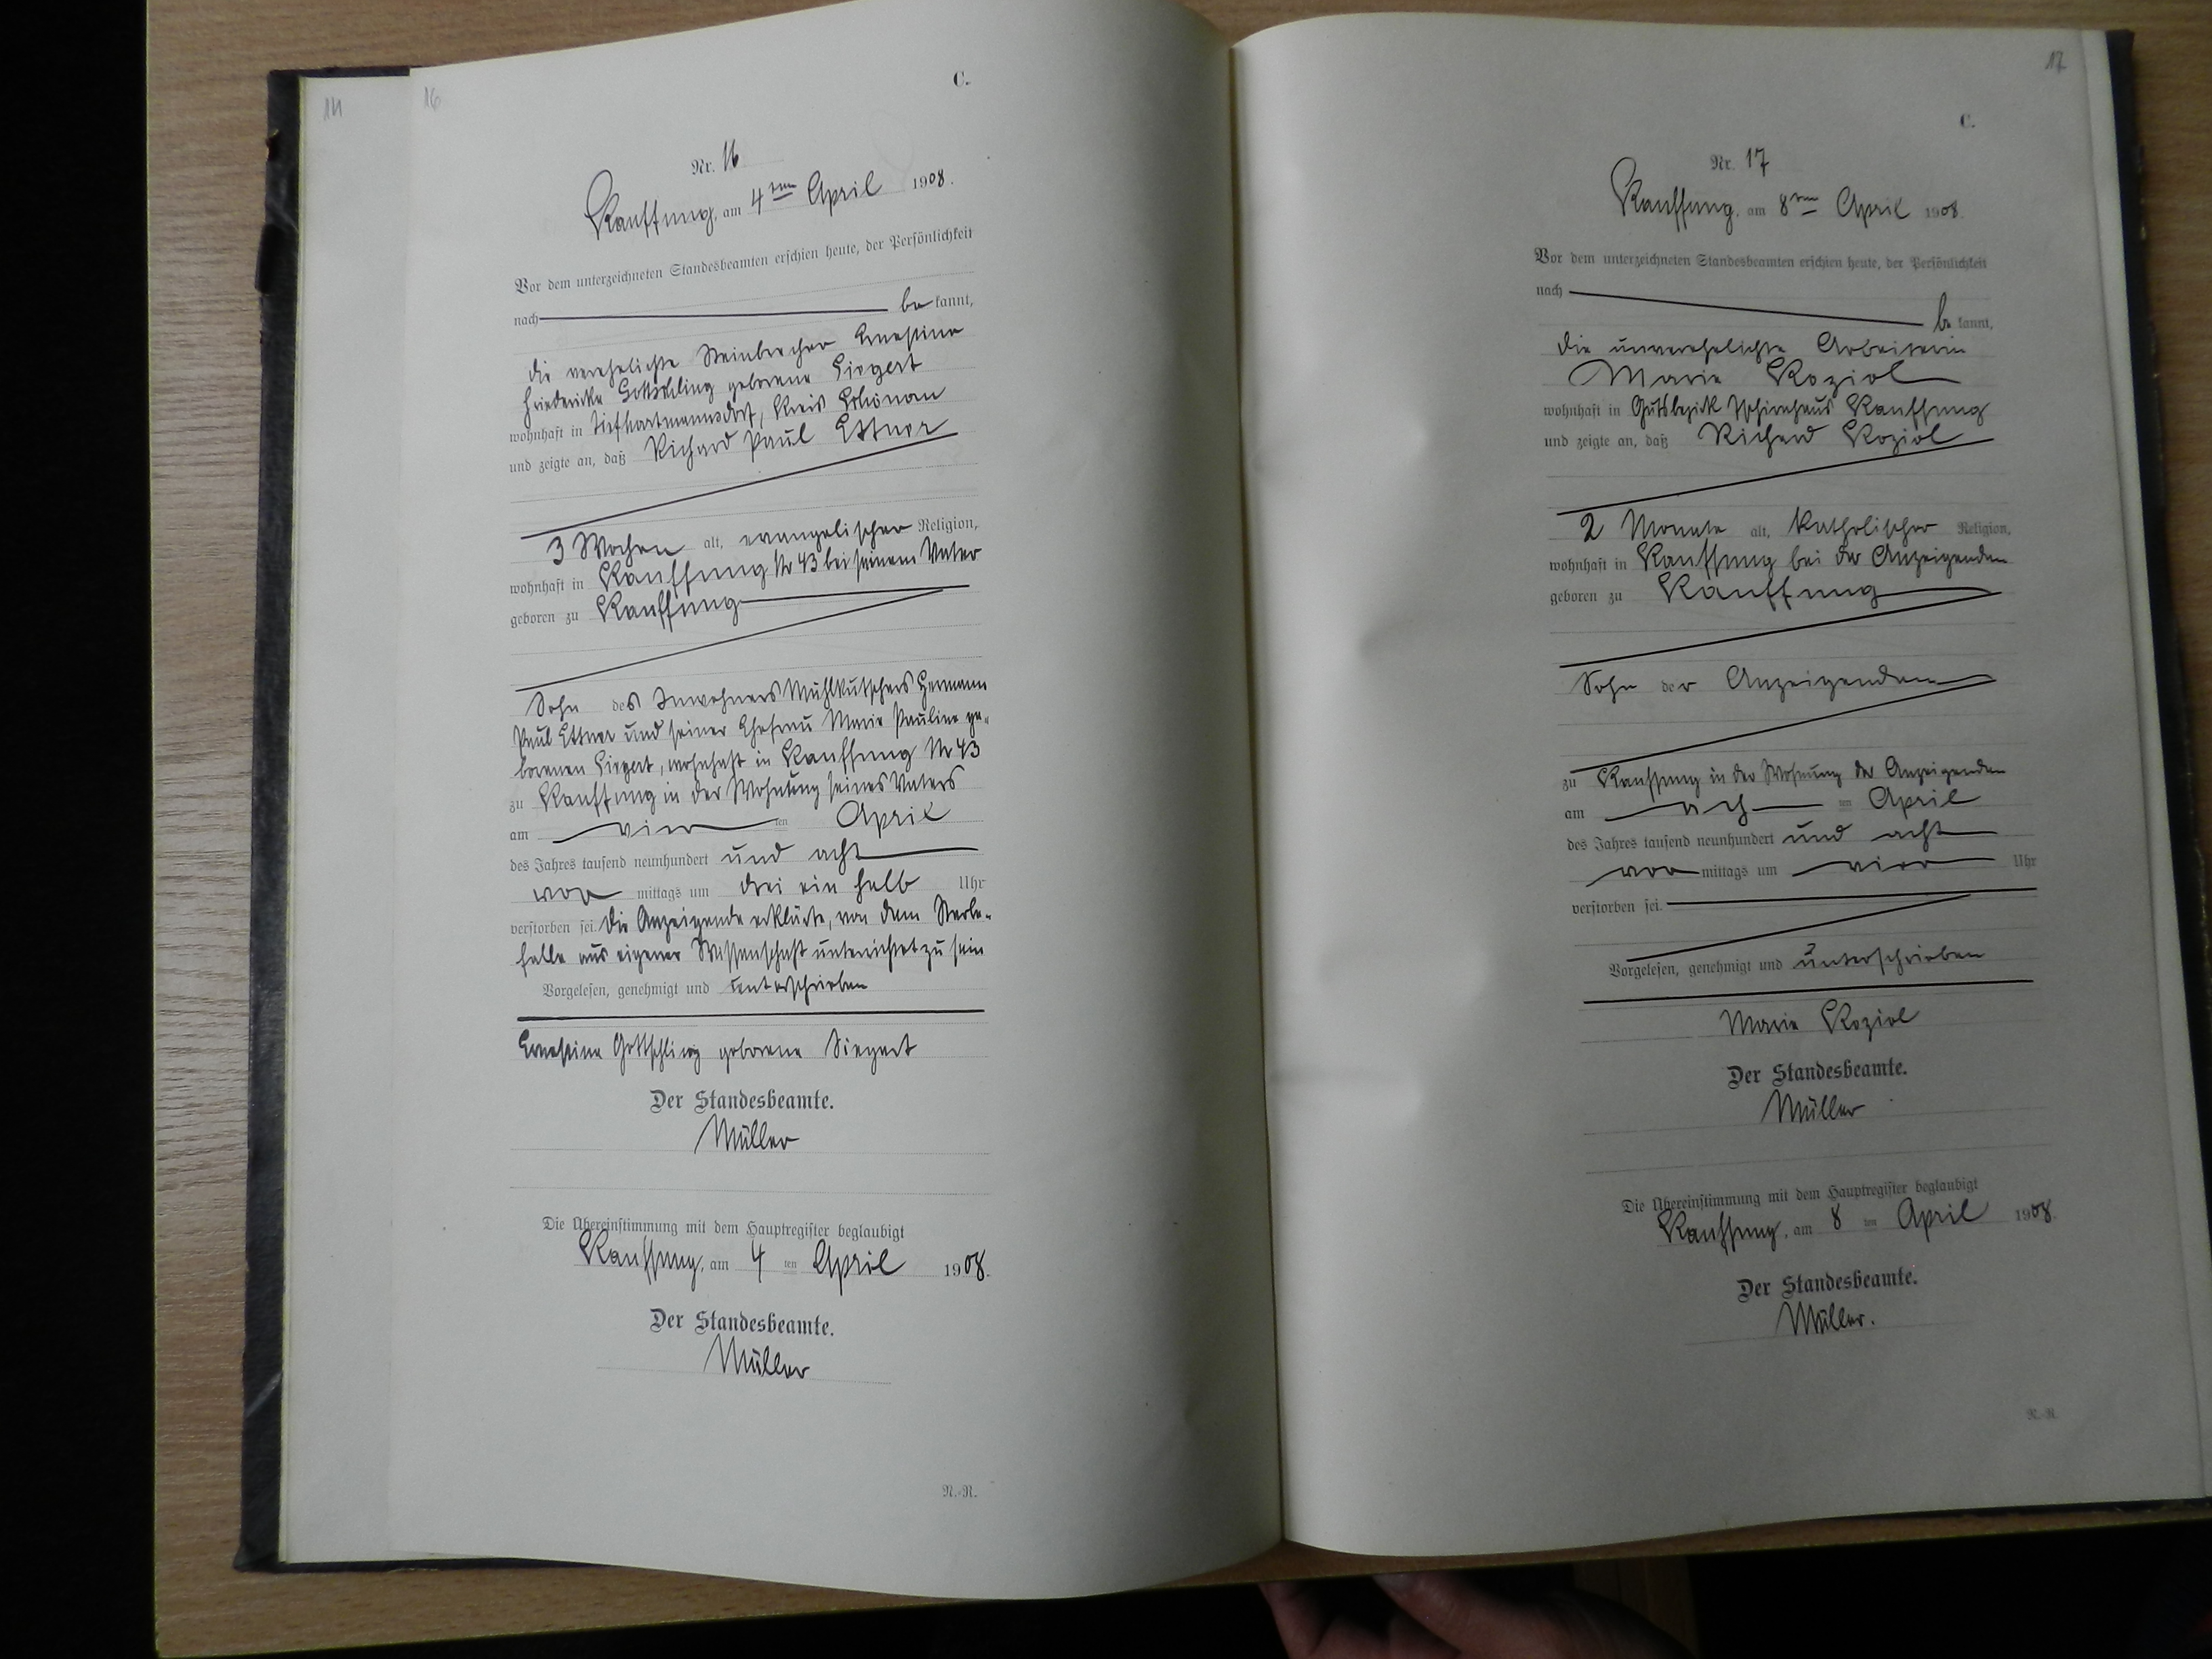 14
16
C.
Nr. 16
Kauffung, am 4ten April 1908.
Vor dem unterzeichneten Standesbeamten erschien heute, der Persönlichkeit
nach be kannt,
die verehelichte Steinbrecher Ernestine
Friedericke Gottschling geborene Siegert
wohnhaft in Tiefhartmannsdorf, Kreis Schönau
und zeigte an, daß Richard Paul Ettner
3 Wochen alt, evangelischer Religion,
wohnhaft in Kauffung Nr 43 bei seinem Vater
geboren zu Kauffung
Sohn des Inwohners Mühlkutschers Hermann
Paul Ettner und seiner Ehefrau Marie Pauline ge-
borenen Siegert, wohnhaft in Kauffung Nr 43
zu Kauffung in der Wohnung seines Vaters
am vier ten April
des Jahres tausend neunhundert und acht
vor mittags um drei ein halb Uhr
verstorben sei. Die Anzeigende erklärte, von dem Sterbe-
falle aus eigener Wissenschaft unterrichtet zu sein
Vorgelesen, genehmigt und unterschrieben
Ernestine Gottschling geborene Siegert
Der Standesbeamte.
Müller
Die Übereinstimmung mit dem Hauptregister beglaubigt
Kauffung, am 4 ten April 1908.
Der Standesbeamte.
Müller
N.-R.
17
C.
Nr. 17
Kauffung, am 8ten April 1908.
Vor dem unterzeichneten Standesbeamten erschien heute, der Persönlichkeit
nach be kannt,
die unverehelichte Arbeiterin
Marie Koziol
wohnhaft in Gutsbezirk Tschirnhaus Kauffung
und zeigte an, daß Richard Koziol
2 Monate alt, katholischer Religion,
wohnhaft in Kauffung bei der Anzeigenden
geboren zu Kauffung
Sohn der Anzeigenden
zu Kauffung in der Wohnung der Anzeigenden
am ach ten April
des Jahres tausend neunhundert und acht
vor mittags um vier Uhr
verstorben sei.
Vorgelesen, genehmigt und unterschrieben
Marie Koziol
Der Standesbeamte.
Müller
Die Übereinstimmung mit dem Hauptregister beglaubigt
Kauffung, am 8 ten April 1908.
Der Standesbeamte.
Müller.
N.-R.